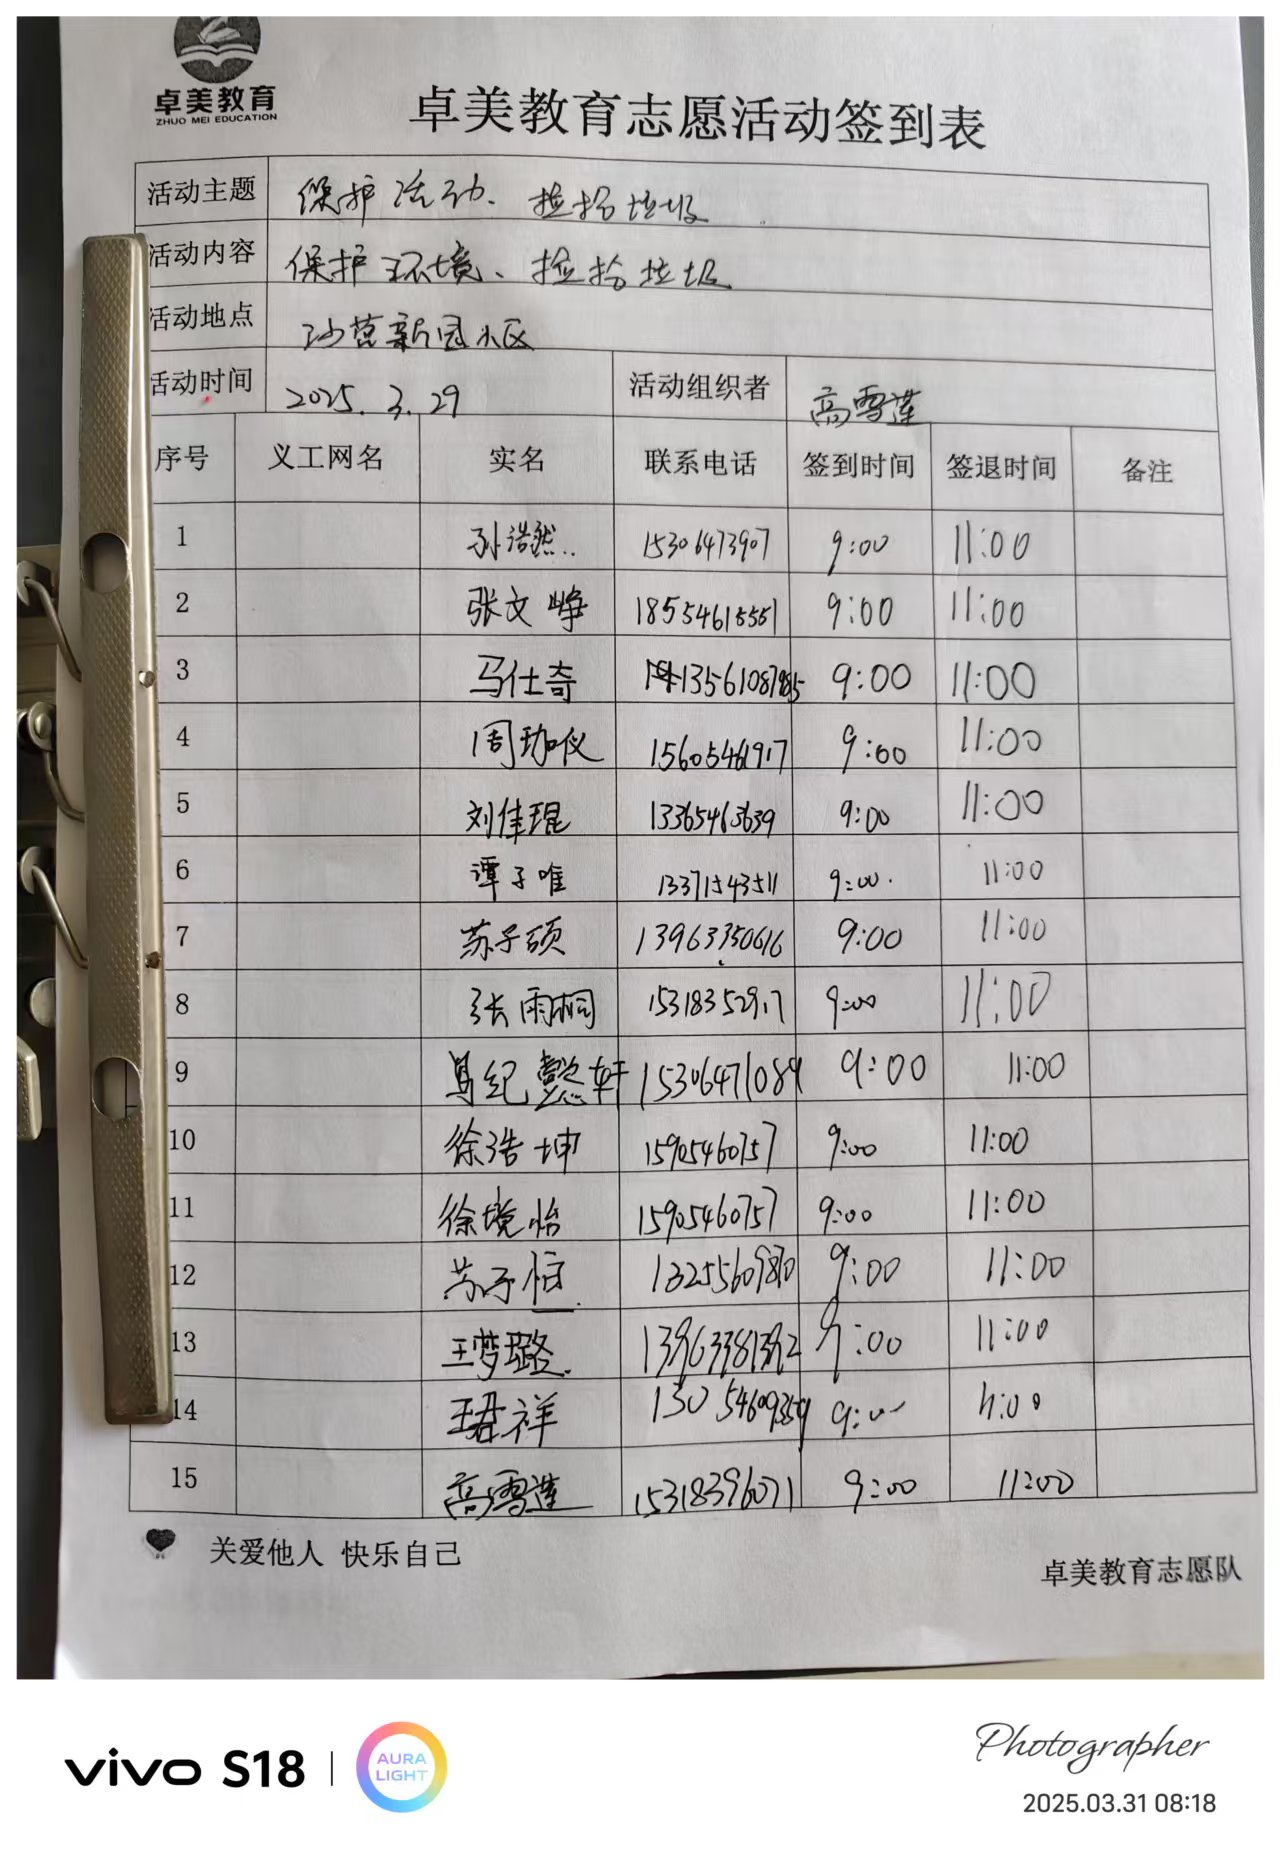 卓美教育
ZHUO MEI EDUCATION
卓美教育志愿活动签到表
活动主题 保护活动、捡拾垃圾
活动内容 保护环境、捡拾垃圾
活动地点 新园小区
活动时间 2025.3.29 活动组织者 高雪莲
序号 义工网名 实名 联系电话 签到时间 签退时间 备注
1 孙浩然 15306473907 9:00 11:00
2 张文峥 18554615551 9:00 11:00
3 马仕奇 13561087985 9:00 11:00
4 周珈仪 15605461917 9:00 11:00
5 刘佳琨 13365463639 9:00 11:00
6 谭子唯 13371543511 9:00 11:00
7 苏子硕 13963350616 9:00 11:00
8 张雨桐 15318352917 9:00 11:00
9 纪懿轩 15306471089 9:00 11:00
10 徐浩坤 15905460757 9:00 11:00
11 徐境怡 15905460757 9:00 11:00
12 苏子恒 9:00 11:00
13 王梦璐 9:00 11:00
14 王君祥 9:00 11:00
15 高雪莲 15318396071 9:00 11:00
关爱他人 快乐自己
卓美教育志愿队
vivo S18 | AURA LIGHT
Photographer
2025.03.31 08:18